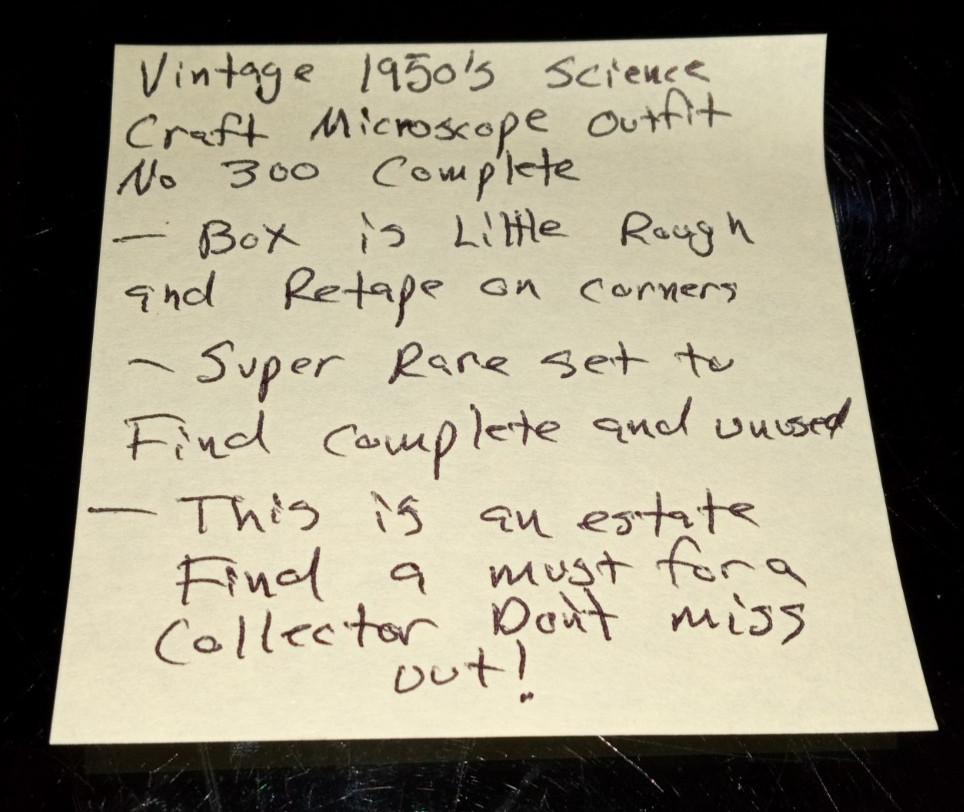 Vintage 1950's Science
Craft Microscope Outfit
No 300 Complete
— Box is Little Rough
and Retape on corners
- Super Rare set to
Find complete and unused
— This is an estate
Find a must for a
Collector Don't miss
out!